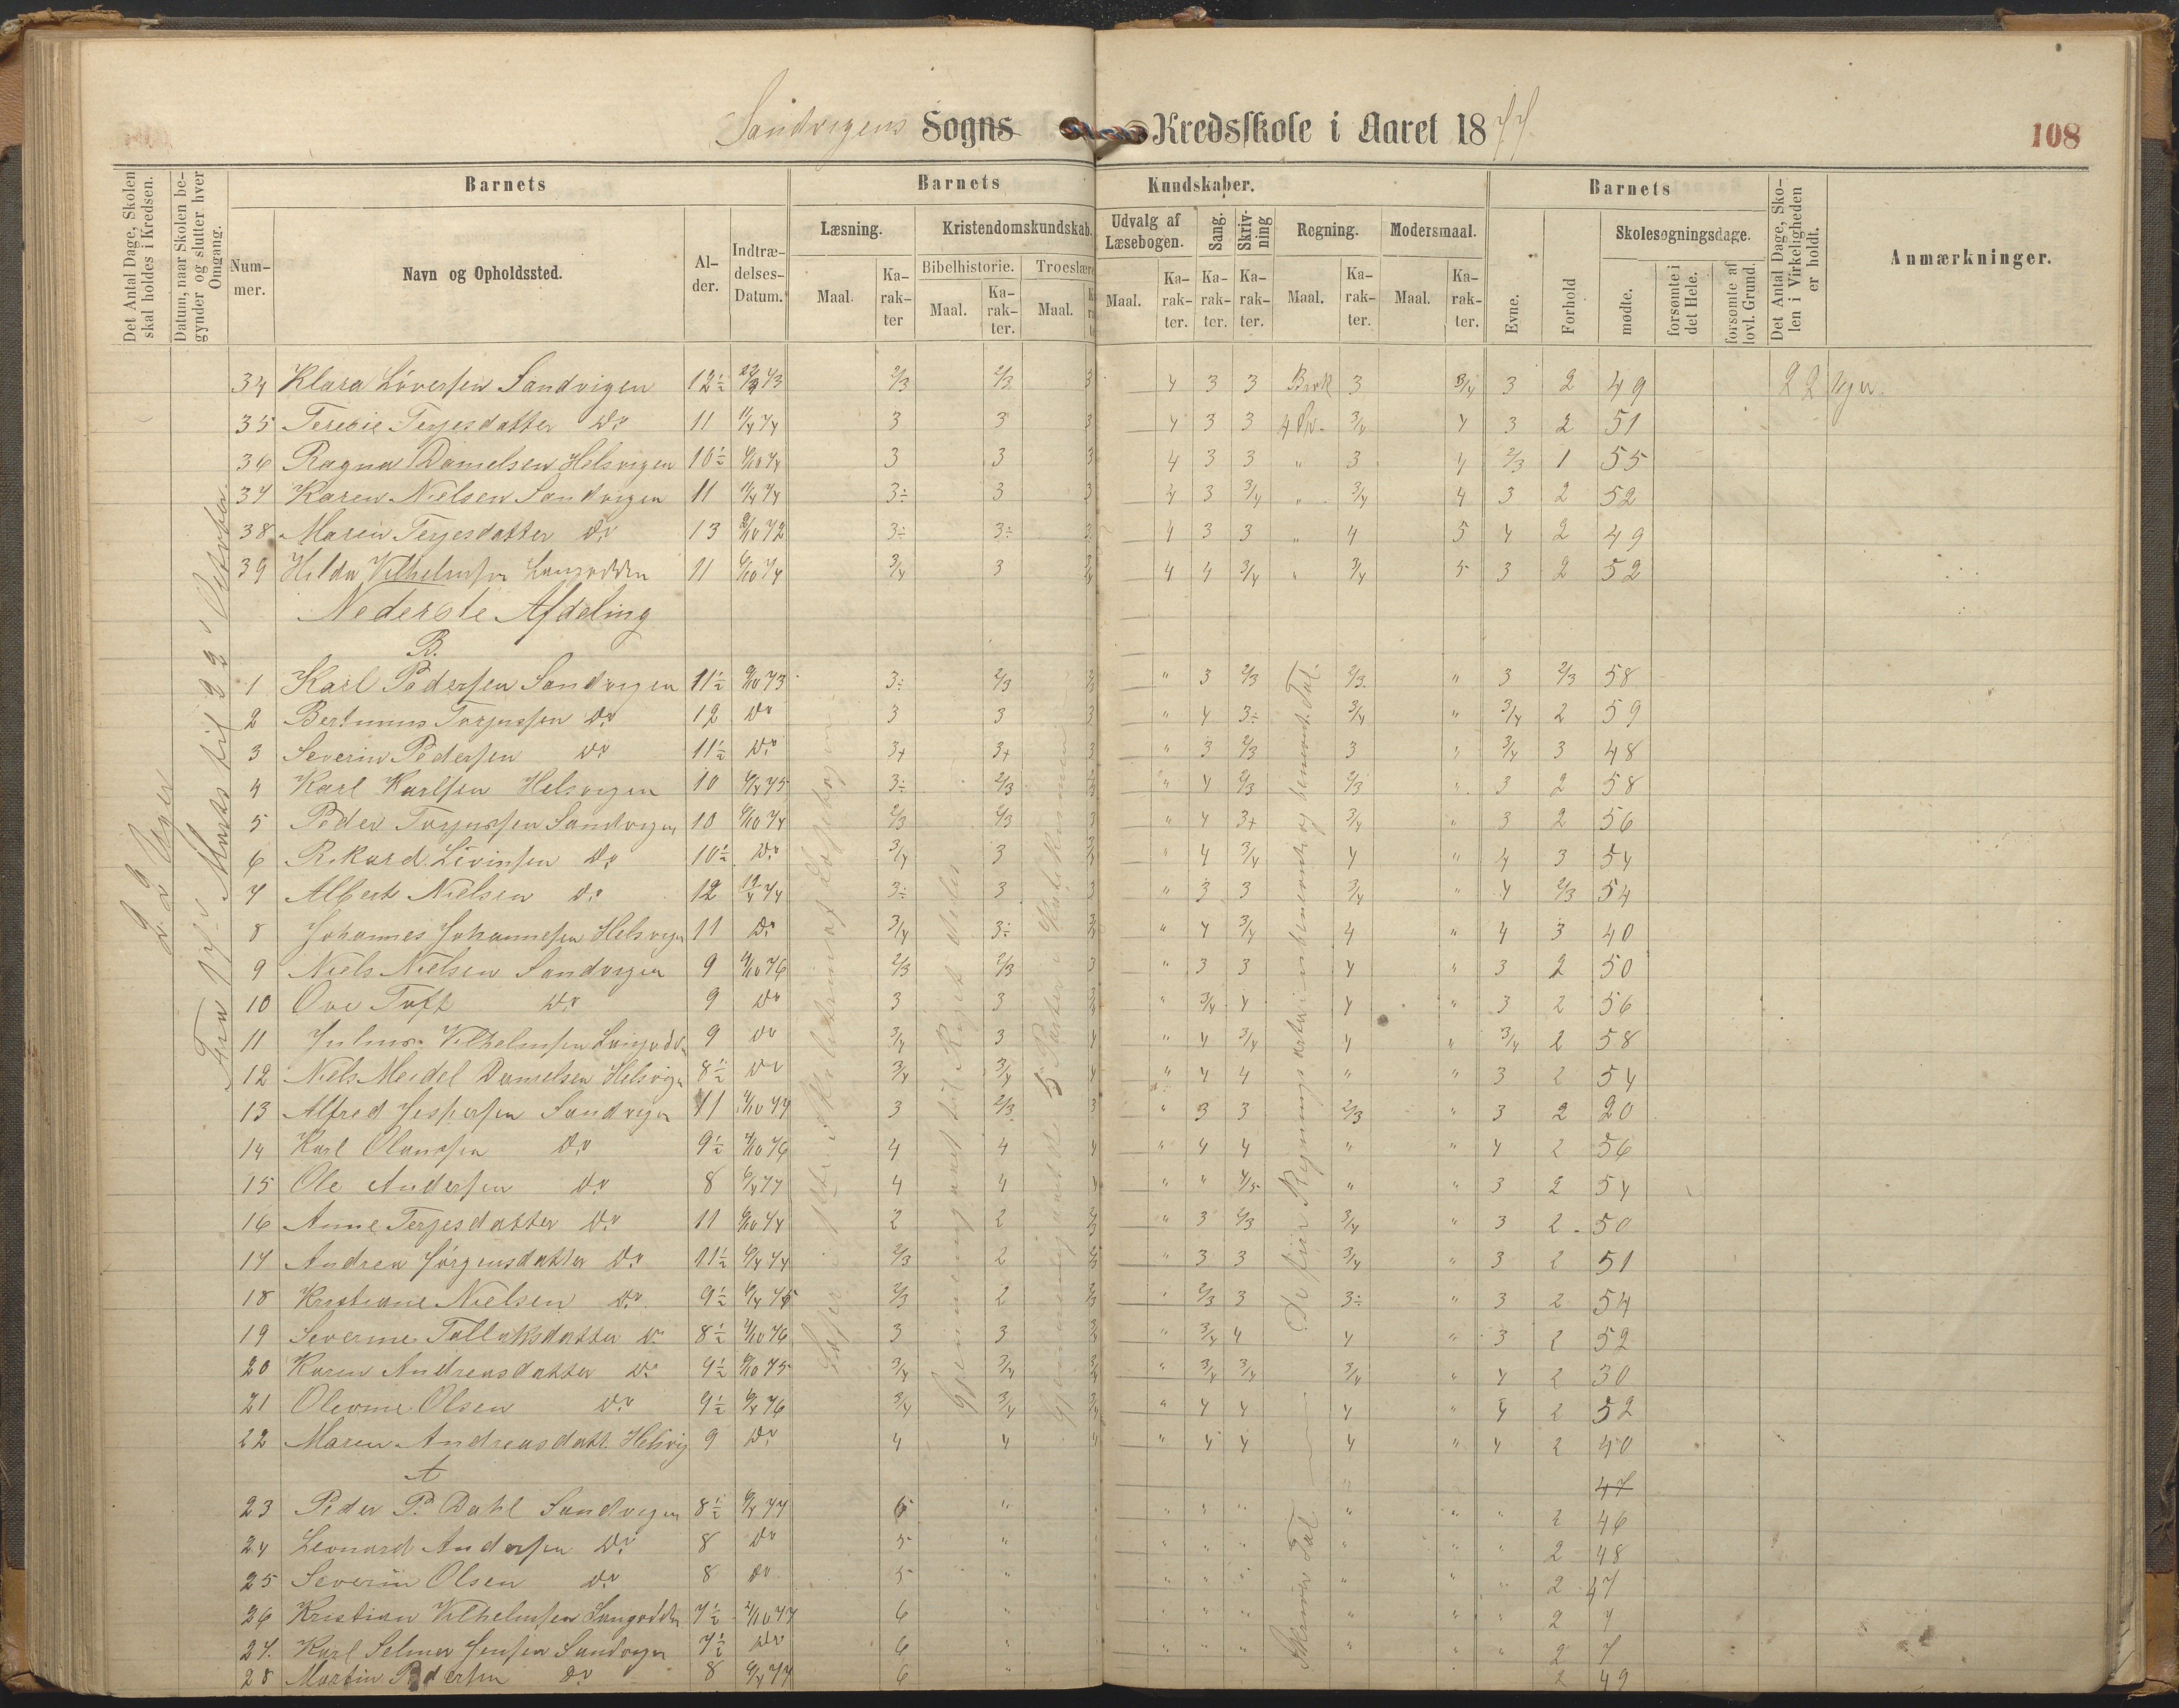 Sandvigens Sogns Kredsskole i Aaret 1877.
108
Det Antal Dage, Skolen skal holdes i Kredsen.
Datum, naar Skolen begynder og slutter hver Omgang.
Barnets
Nummer.
Navn og Opholdssted.
Alder.
Indtrædelses-Datum.
Barnets Kundskaber.
Læsning.
Maal.
Karakter
Kristendomskundskab.
Bibelhistorie.
Maal.
Karakter.
Troeslære
Maal.
Udvalg af Læsebogen.
Maal.
Karakter.
Sang.
Karakter.
Skrivning
Karakter.
Regning.
Maal.
Karakter.
Modersmaal.
Maal.
Karakter.
Barnets
Evne.
Forhold
Skolesøgningsdage.
mødte.
forsømte i det Hele.
forsømte af lovl. Grund.
Det Antal Dage, Skolen i Virkeligheden er holdt.
Anmærkninger.
34 Klara Løversen Sandvigen 12½ 2/3 2/3 3 4 3 3 Brøk 3 3/4 3 2 49 22 Uger.
35 Teresie Terjesdatter Do 11 11/4 74 3 3 3 4 3 3 3/4 4 3 2 51
36 Ragna Danielsen Helsvigen 10½ 6/10 74 3 3 3 4 3 3 " 3 4 2/3 1 55
37 Karen Nielsen Sandvigen 11 11/4 74 3÷ 3 3 4 3 3/4 " 3/4 4 3 2 52
38 Maren Terjesdatter Do 13 2/10 72 3÷ 3÷ 3 4 3 3 " 4 5 4 2 49
39 Hilda Vilhelmsen Langodden 11 6/10 74 3/4 3 3/4 4 4 3/4 " 3/4 5 3 2 52
Nederste Afdeling
B.
1 Karl Pedersen Sandvigen 11½ 9/10 73 3÷ 2/3 2/3 " 3 2/3 2/3 " 3 2/3 58
2 Bertinius Torjussen Do 12 Do 3 3 3 " 4 3÷ 3/4 " 3/4 2 59
3 Severin Pedersen Do 11½ Do 3+ 3+ 3 " 3 2/3 3 " 3/4 3 48
4 Karl Karlsen Helsvigen 10 6/4 75 3÷ 2/3 2/3 " 4 2/3 2/3 " 3 2 58
5 Peder Torjussen Sandvigen 10 6/10 74 2/3 2/3 3 " 4 3+ 3/4 " 3 2 56
6 Rikard Livinsen Do 10½ Do 3/4 3 3/4 " 4 3/4 4 " 4 3 54
7 Albert Nielsen Do 12 3÷ 3 3 " 3 3 3/4 " 4 2/3 54
8 Johannes Johannesen Helsvigen 11 Do 3/4 3÷ 3/4 " 4 3/4 4 " 4 3 40
9 Niels Nielsen Sandvigen 9 4/10 76 2/3 2/3 3 " 3 3 4 " 3 2 50
10 Ove Toft Do 9 Do 3 3 3/4 " 3/4 4 4 " 3 2 56
11 Julius Vilhelmsen Langodd. 9 Do 3/4 3 4 " 4 3/4 4 " 3/4 2 58
12 Niels Meidel Danielsen Helsvigen 8½ Do 3/4 3/4 4 " 4 4 " " 3 2 54
13 Alfred Jespersen Sandvigen 11 3 2/3 3 " 3 3 2/3 " 3 2 20
14 Karl Olaussen Do 9½ 4/10 76 4 4 4 " 4 4 " " 4 2 56
15 Ole Andersen Do 8 6/4 77 4 4 4 " " 4/5 " " 3 2 54
16 Anne Terjesdatter Do 11 6/10 74 2 2 2/3 " 3 2/3 3/4 " 3 2 50
17 Andrea Jørgensdatter Do 11½ 6/4 74 2/3 2 2/3 " 3 3 3/4 " 3 2 51
18 Kristiane Nielsen Do 9½ 6/4 75 2/3 2 2/3 " 2/3 3 3÷ " 3 2 54
19 Severine Tallaksdatter Do 8½ 4/10 76 3 3 3/4 " 3/4 4 4 " 3 2 52
20 Karen Andreasdatter Do 9½ 6/10 75 3/4 3/4 3/4 " 3/4 3/4 3/4 " 4 2 30
21 Olevine Olsen Do 9½ 6/4 76 3/4 3/4 3/4 " 4 4 4 " 4 2 52
22 Maren Andreasdatt. Helsvig 9 Do 4 4 4 " 4 4 4 " 4 2 40
A
47
23 Peder P. Dahl Sandvigen 8½ 6/4 77 5 " " " " " " " 2 46
24 Leonard Andersen Do 8 Do 5 " " " " " " " 2 48
25 Severin Olsen Do 8 Do 5 " " " " " " " 2 47
26 Kristian Vilhelmsen Langodden 7½ 2/10 77 6 " " " " " " " 2 7
27. Karl Selmer Jensen Sandvigen 7½ Do 6 " " " " " " " 2 7
28 Martin Pedersen Do 8 6/4 77 6 " 2 49
22 Uger
Fra 17. Marts til 22. October
Gjennemgaaet til Riget deles
Gjennemgaaet de 5 Parter i Katekismen
De fire Regningsarter i ubenævnte og benævnte Tal
Skriver Tal